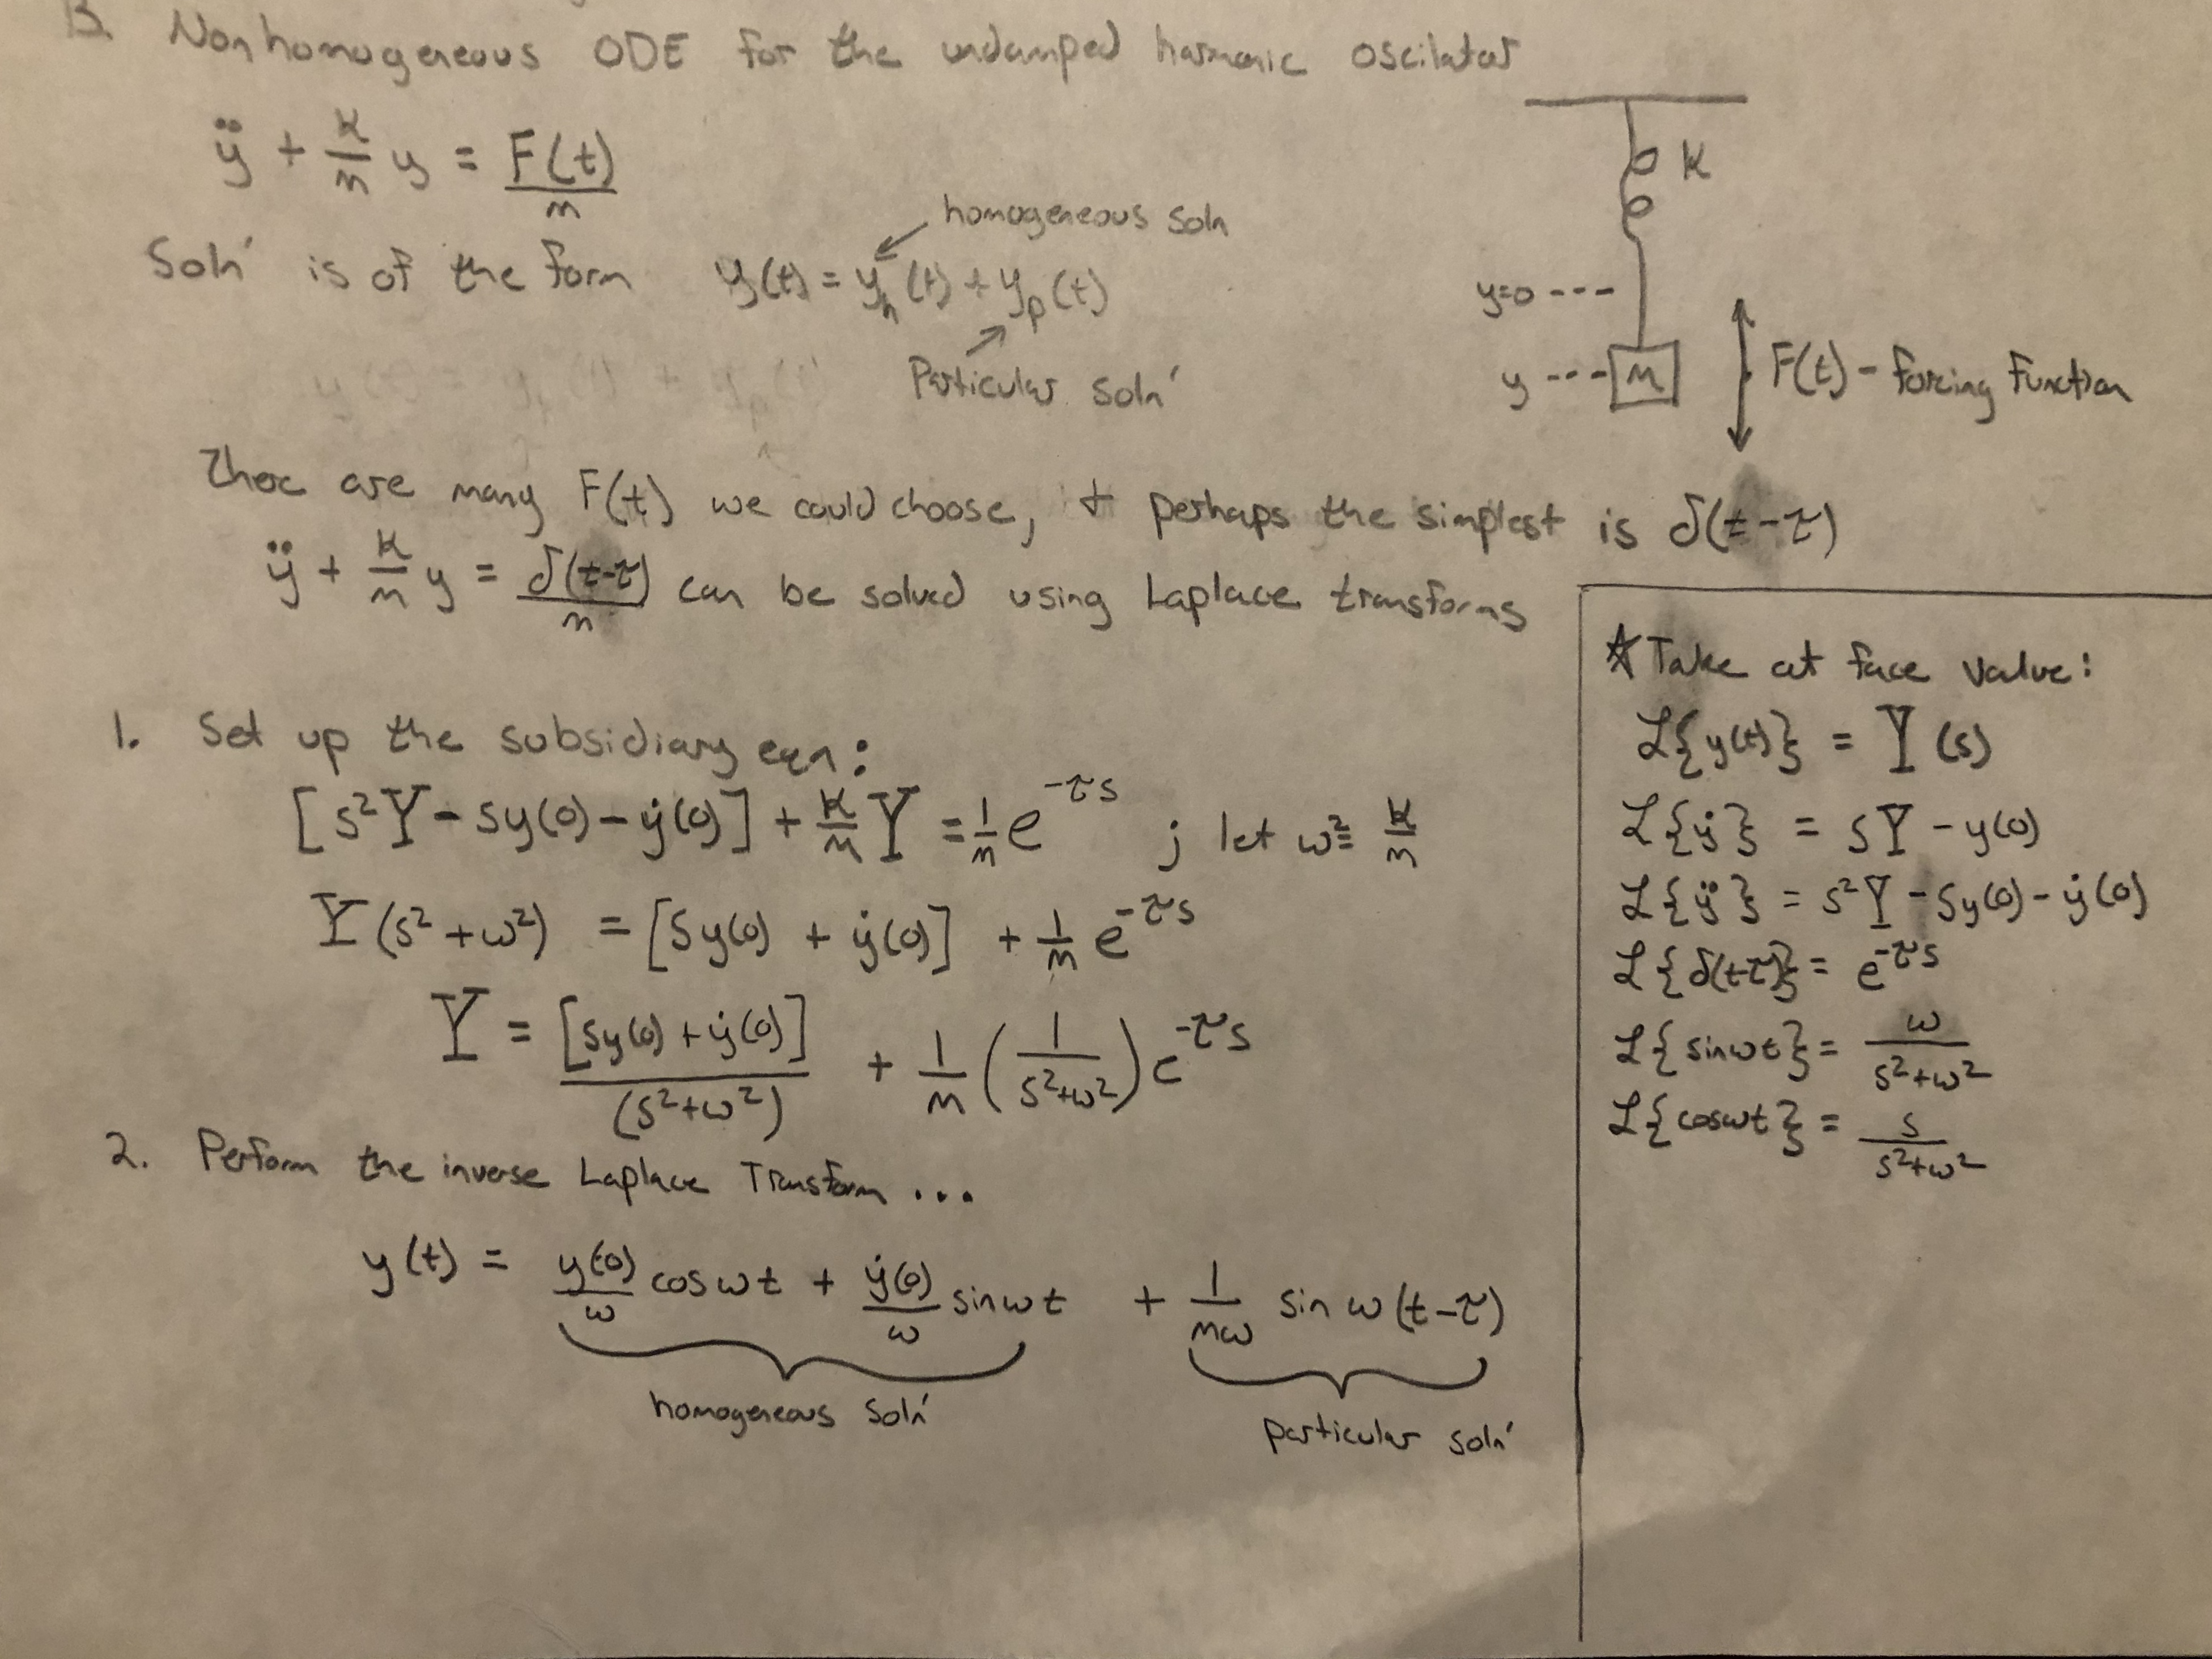 B. Nonhomogeneous ODE for the undamped harmonic oscilator
ÿ + k/m y = F(t)/m
K
homogeneous soln
Soln' is of the form y(t) = y_h(t) + y_p(t)
Particular soln'
y=0 ---
y --- m
F(t) - forcing function
There are many F(t) we could choose, + perhaps the simplest is δ(t-τ)
ÿ + k/m y = δ(t-τ)/m can be solved using Laplace transforms
1. Set up the subsidiary eqn:
[s²Y - sy(0) - ẏ(0)] + k/m Y = 1/m e^-τs ; let ω² = k/m
Y(s²+ω²) = [sy(0) + ẏ(0)] + 1/m e^-τs
Y = [sy(0) + ẏ(0)]/(s²+ω²) + 1/m (1/s²+ω²) e^-τs
2. Perform the inverse Laplace Transform ...
y(t) = y(0)/ω cosωt + ẏ(0)/ω sinωt + 1/mω sin ω(t-τ)
homogeneous soln' particular soln'
☆ Take at face value:
ℒ{y(t)} = Y(s)
ℒ{ẏ} = sY - y(0)
ℒ{ÿ} = s²Y - sy(0) - ẏ(0)
ℒ{δ(t-τ)} = e^-τs
ℒ{sinωt} = ω/s²+ω²
ℒ{cosωt} = s/s²+ω²